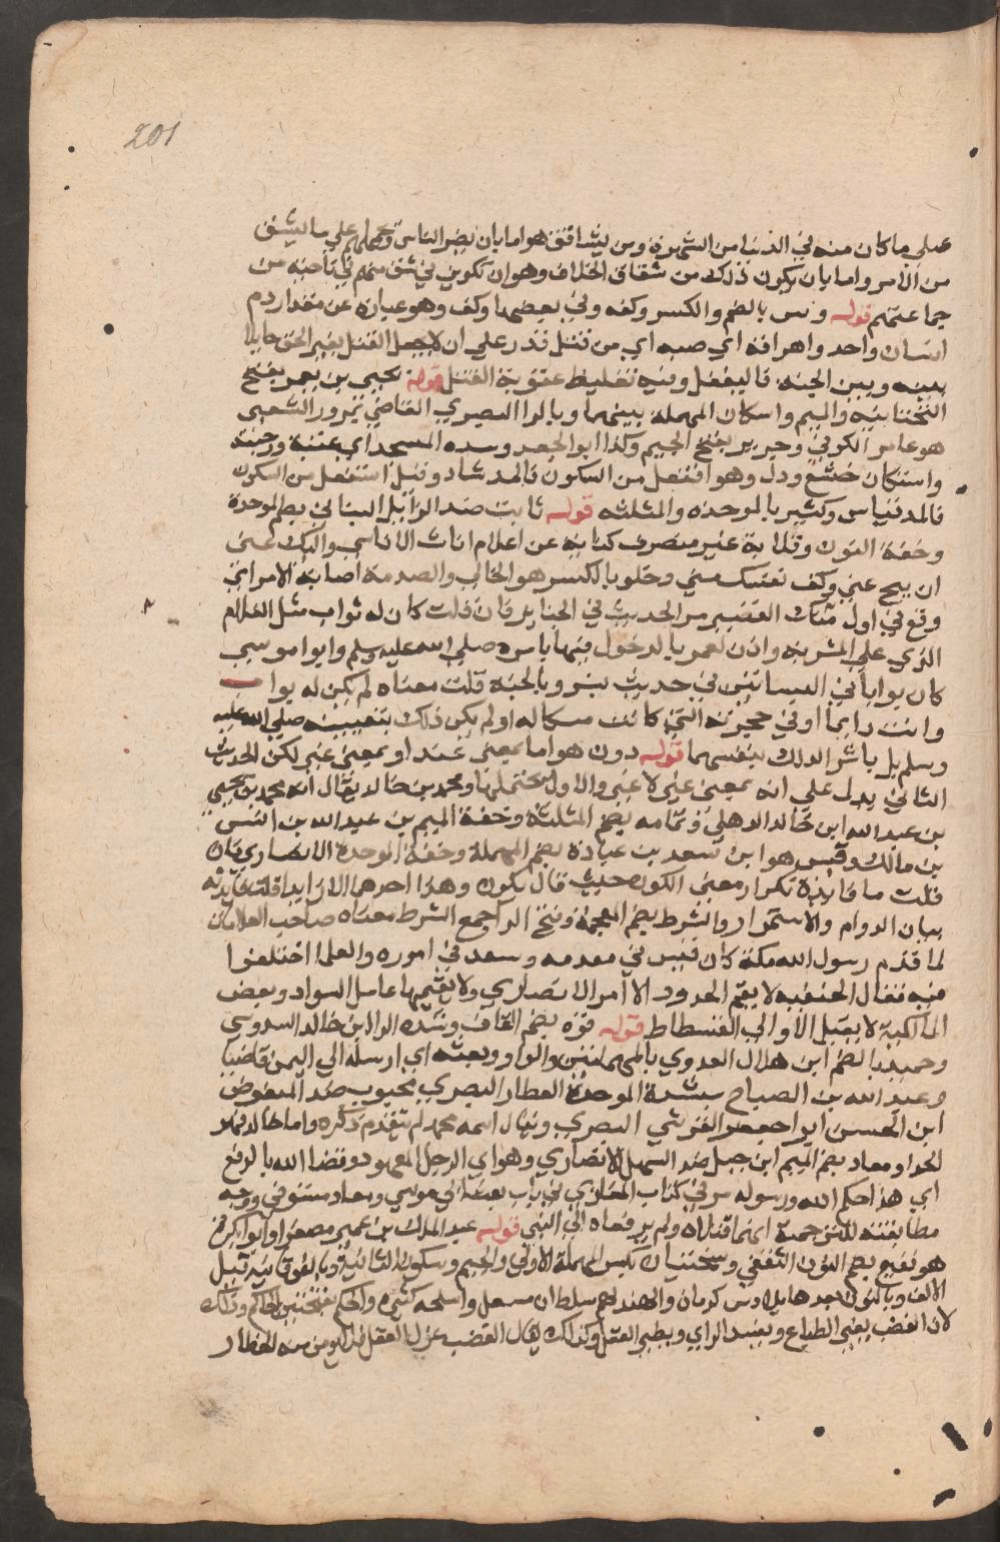 201
عملي ما كان منه في الدنيا من الشهرة ومن يشاقق هو اما بان يضر الناس ويحملهم علي ما يشق
من الامر واما بان يكون ذلك من شقاق الخلاف وهو ان يكون في شق منهم في ناحية من
جماعتهم قوله بالضم والكسر وكفه وفي بعضها وكف وهو عبارة عن مقدار دم
انسان واحد واهراقه اي صبه اي من قدر علي ان لا يجعل القتل بغير الحق حايلا
بينه وبين الجنة فاليفعل وفيه تغليظ عقوبة القتل قوله يحيي بن يعمر بفتح
التحتانية والميم واسكان المهملة بينهما وبالرا البصري القاضي بمرو والشعبي
هو عامر الكوفي وجرير بفتح الجيم وكذا ابو الجعد وسدة المسجد اي عتبته ورحبته
واستكان خشع وذل وهو افتعل من السكون فالمد شاذ وقيل استفعل من السكون
فالمد قياس وكثير بالموحدة والمثلثة قوله ثابت ضد الزايل البناني بضم الموحدة
وخفة النون وفلانة غير منصرف كناية عن اعلام اناث الاناسي واليك عني
اي تنح عني وكف نفسك مني وخلو بالكسر هو الخالي والصدمة اصابة الامر اي
وقع في اول مر الحديث في الجنايز فان قلت كان له ثواب مثل الغلام
الذي علي المشربة واذن لعمر بالدخول فيها بامره صلي الله عليه وسلم وابو موسي
كان بوابا في البساتين في حديث بشره بالجنة قلت معناه لم يكن له بواب
راتب دايما او في حجرته التي كانت مسكنا له او لم يكن ذلك بتعيينه صلي الله عليه
وسلم بل باشر الذلك بنفسهما قوله دون هو اما بمعني عند او بمعني غير لكن الحديث
الثاني يدل علي انه بمعني عند لا غير والاول يحتملهما ومحمد بن خالد يقال انه محمد بن يحيي
بن عبد الله ابن خالد الذهلي وثمامة بضم المثلثة وخفة الميم بن عبد الله بن انس
بن مالك وقيس هو ابن سعد بن عبادة بضم المهملة وخفة الموحدة الانصاري فان
قلت ما فايدة تكرار معني الكون حيث قال يكون وهذا احدهما الا زايد قلت فايدته
بيان الدوام والاستمرار والشرط بضم المعجمة وفتح الرا جمع الشرط معناه صاحب العلامات
لما قدم رسول الله مكة كان قيس في مقدمه وسعد في اموره والعلما اختلفوا
فيه فقال الحنفية لا يقيم الحدود الا امرا الانصاري ولا يقيمها عامل السواد وبعض
المالكية لا يقيل الا والي الفسطاط قوله قرة بضم القاف وشدة الرا ابن خالد السدوسي
وحميد بالضم ابن هلال العدوي بالمهملتين والواو وبعثه اي ارسله الي اليمن قاضيا
وعبد الله بن الصباح بشدة الموحدة العطار البصري محبوب ضد المبغوض
ابن الحسن ابو جعفر القرشي البصري ويقال اسمه محمد لم يتقدم ذكره واما خالد فهو
الحذا ومعاذ بضم الميم ابن جبل ضد السهل الانصاري وهو اي الرجل المعهود وقضا الله بالرفع
اي هذا حكم الله ورسوله مر في كتاب المغازي في باب بعث ابي موسي ومعاذ مستوفي ووجه
مطابقته للترجمة انهما قتلاه ولم يرفعاه الي النبي قوله عبد الملك بن عمير مصغرا وابو بكرة
هو نفيع بضم النون الثقفي وسجستان بكسر المهملة الاولي والجيم وسكون الثانية وبالفوقانية قبل
الالف وبالنون بعدها بلاد بين كرمان والهند والحكم بفتحتين الحاكم وذلك
لان الغضب يغير الطباع ويفسد الراي ويطير العقل وكذلك يقال الغضب غول العقل